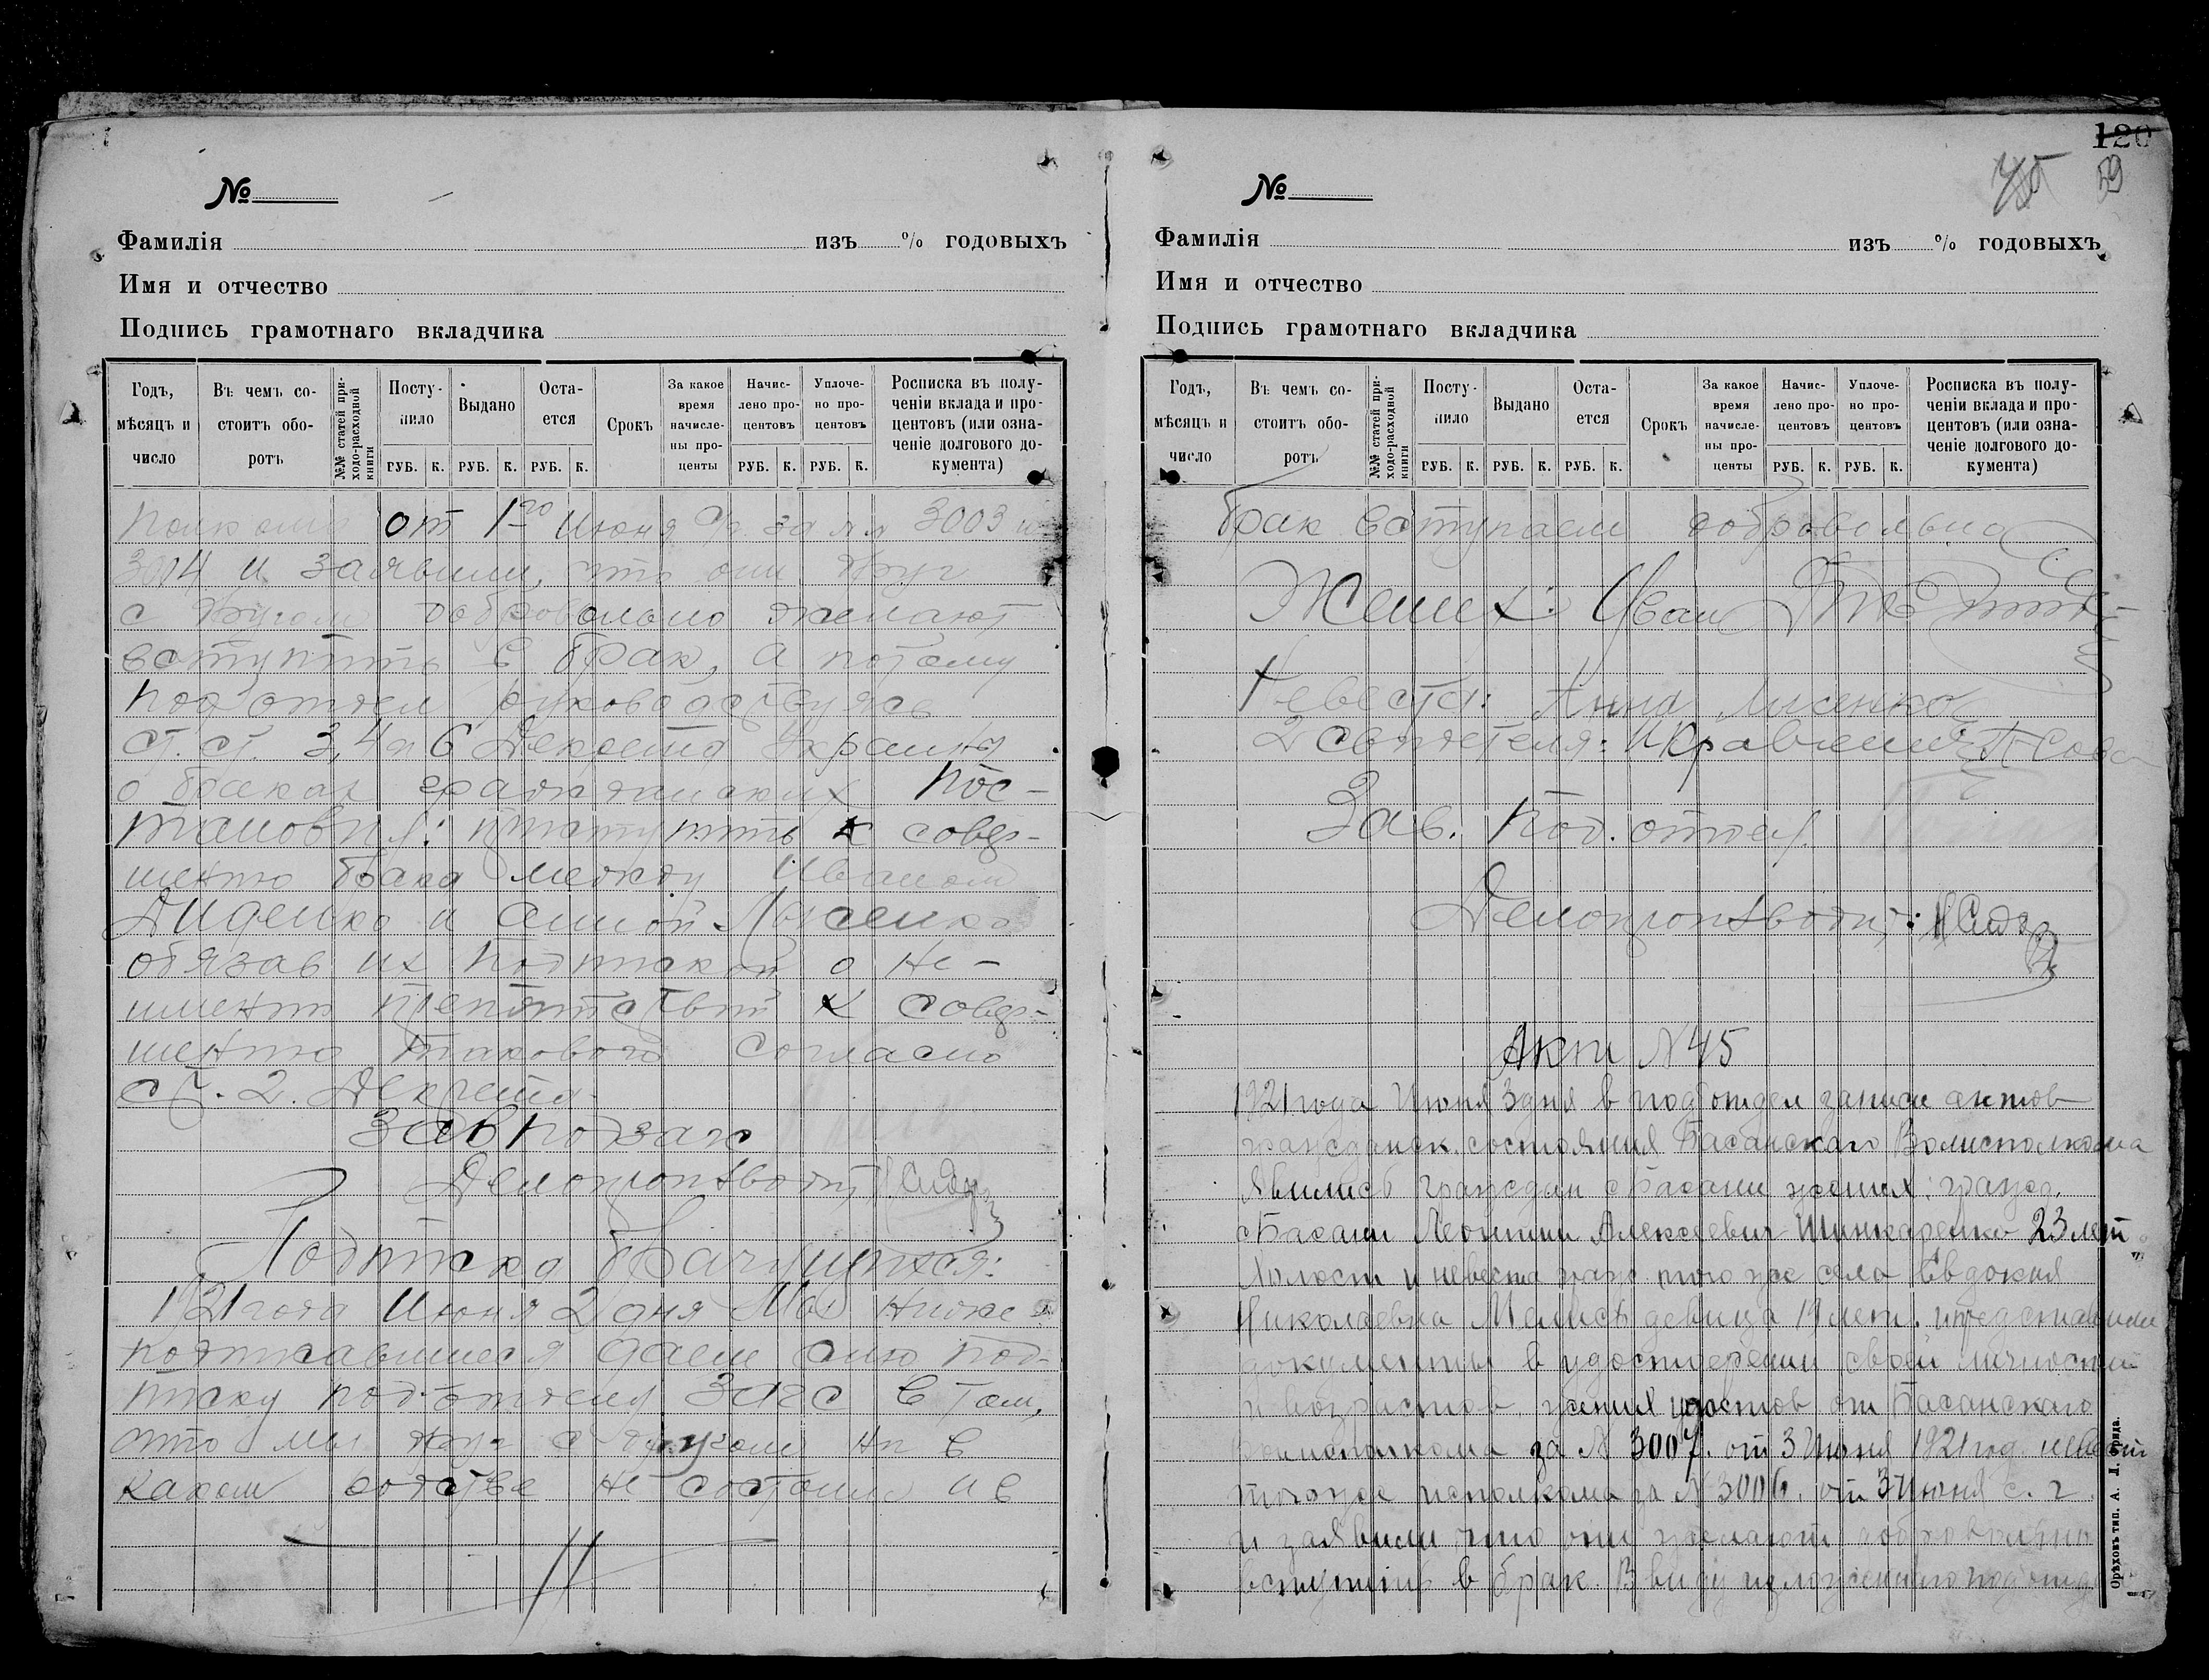 №
Фамилія из % годовыхъ
Имя и отчество
Подпись грамотнаго вкладчика
Годъ, мѣсяцъ и число
Въ чемъ состоитъ оборотъ
№№ статей приходо-расходной книги
Поступило РУБ. К.
Выдано РУБ. К.
Остается РУБ. К.
Срокъ
За какое время начислены проценты
Начислено процентовъ РУБ. К.
Уплочено процентовъ РУБ. К.
Росписка въ полученіи вклада и процентовъ (или означеніе долгового документа)
от 1го Июня с/г за № 3003 и
3004 и заявили, что они друг
с другом добровольно желают
вступить в брак, а потому
под отдел руководствуясь
ст. ст. 3, 4 и 6 Декрета Украины
о браках гражданских пос-
тановил: приступить к совер-
шению брака между Иваном
Диденко и Анной Лысенко
обязав их подпиской о не-
имении препятствий к совер-
шению такового согласно
ст. 2. Декрета.
Зав подзагс
Делопроизводит
Подписка брачущихся:
1921 года Июня 2 дня Мы ниже
подписавшиеся даем сию под-
писку под отделу Загс в том,
что мы друг с другом ни в
каком родстве не состоим и в
120
45 59
№
Фамилія из % годовыхъ
Имя и отчество
Подпись грамотнаго вкладчика
Годъ, мѣсяцъ и число
Въ чемъ состоитъ оборотъ
№№ статей приходо-расходной книги
Поступило РУБ. К.
Выдано РУБ. К.
Остается РУБ. К.
Срокъ
За какое время начислены проценты
Начислено процентовъ РУБ. К.
Уплочено процентовъ РУБ. К.
Росписка въ полученіи вклада и процентовъ (или означеніе долгового документа)
брак вступаем добровольно
Жених: Иван
Невеста: Анна Лисенко
2 свидетеля: И Кравченко
Зав. Под. отдел.
Делопроизводит:
Акт № 45
1921 года Июня 3 дня в подотдел записи актов
гражданск. состояния Басанскаго Волисполкома
Явились граждан с Басани жених: гражд.
с Басани Леонтий Алексеевич Шинкаренко 23 лет
Холост и невеста гражд. того же села Евдокия
Николаевна девица 19 лет. представили
документы в удостоверении своей личности
и возрастов, жених удостов. от Басанского
Волисполкома за № 3007. от 3 Июня 1921 год. невест
тогоже исполкома за № 3006. от 3 Июня с. г.
и заявили что они желают добровольно
вступить в брак. В виду изложенного подотде
Орѣховъ тип. А. Л. Фрида.